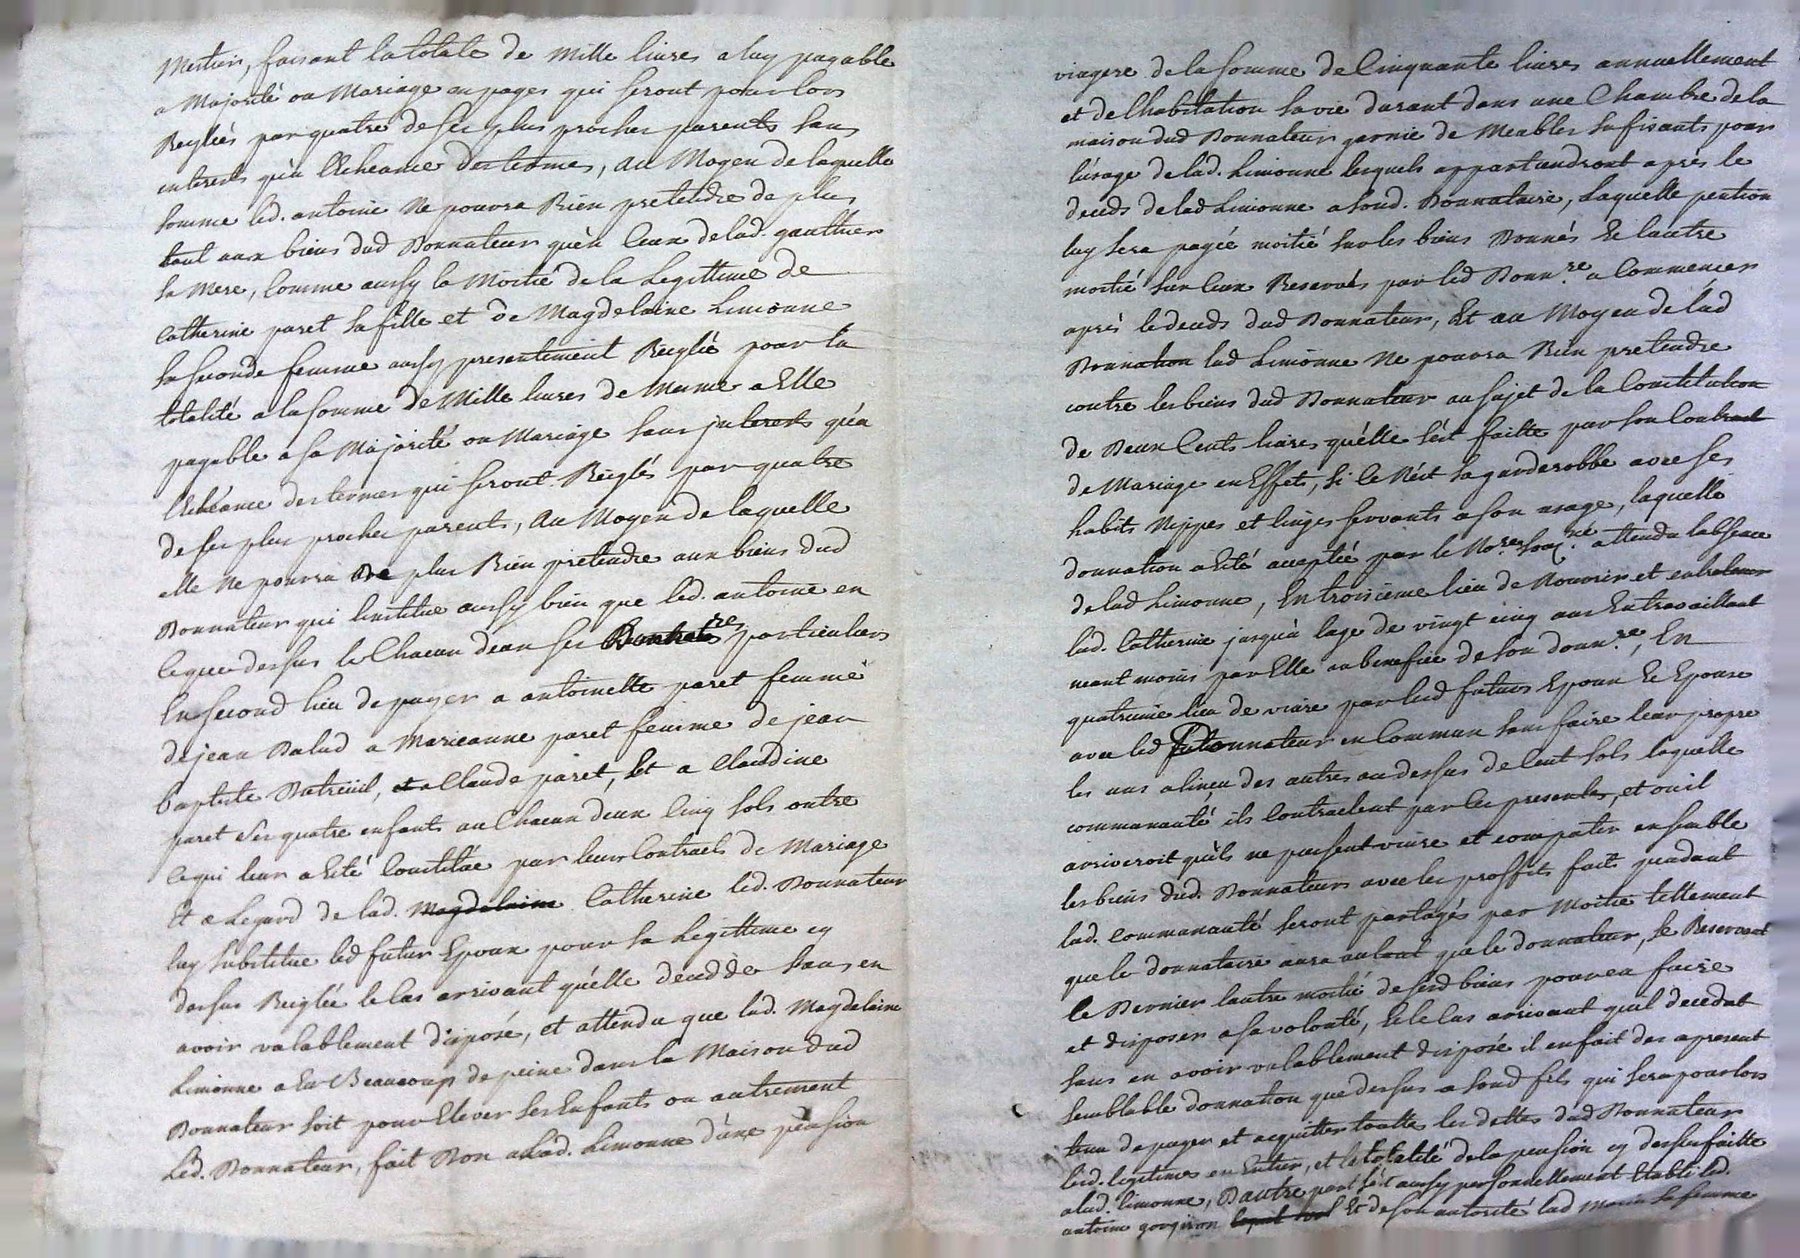 Mestier, faisant la totale de mille livres a luy payable
a Majorité ou Mariage au pages qui seront pour lors
Regléés par quatre de ses plus proches parents sans
interests qu'a l'Echeance des termes, au Moyen de laquelle
somme led. antoine Ne pouvra Rien pretendre de plus
tant aux biens dud Donnateur qu'a Ceux de lad. gauthier
sa Mere, Comme aussy la Moitié de la Legittime de
Catherine paret sa fille et de Magdelaine Limonne
sa seconde femme aussy presentement Reiglée pour la
totalité a la somme de Mille livres de Meme a Elle
payable a sa Majorité ou Mariage sans interests qu'a
l'Echéance des termes qui seront Reiglés par quatre
de ses plus proches parents, au Moyen de laquelle
elle Ne pouvra de plus Rien pretendre aux biens dud
Donnateur qui l'institue aussy bien que led. antoine en
ce que dessus le Chacun d'eux ses particuliers
En second lieu de payer a antoinette paret femme
de jean Dalud a Marieanne paret femme de jean
baptiste Dutreuil, et a Claude paret, Et a Claudine
paret ses quatre enfants au Chacun deux Cinq sols outre
ce qui leur a Eté Constitúe par leurs Contracts de Mariage
Et a Legard de lad. Magdelaine Catherine led. Donnateur
luy substitue led futur Epoux pour sa Legittime cy
dessus Reiglée le Cas arrivant qu'elle decedde sans en
avoir valablement disposé, et attendu que lad. Magdelaine
Limonne a Eu Beaucoup de peine dans la Maison dud
Donnateur soit pour Elever ses Enfants ou autrement
Led. Donnateur, fait Don a Lad. Limonne d'une pension
viagere de la somme de Cinquante livres annuellement
et de l'habitation sa vie durant dans une Chambre de la
maison dud Donnateur garnie de Meubles sufisants pour
l'usage de lad. Limonne lesquels appartiendront après le
deceds de lad Limonne a sond. Donnataire, Laquelle pention
luy sera payée moitié sur les biens Donnés Et lautre
moitié sur Ceux Reservés par led Donn.re a Commencer
après le deceds dud Donnateur, Et au Moyen de lad
Donnation lad Limonne Ne pouvra Rien pretendre
contre les biens dud Donnateur au sujet de la Constitution
de Deux Cents livres qu'elle s'est faitte par son Contract
de Mariage en Effets, si Ce N'est sa garderobbe avec ses
habits Nippes et linges servants a son usage, laquelle
donnation a Eté acceptée par le No.re attendu labsence
de lad Limonne, En troisieme lieu de Nourrir et entretenir
lad. Catherine jusqu'a lage de vingt cinq ans En travaillant
neant moins par Elle au benefice de son donn.re, En
quatrieme lieu de vivre par led futurs Epoux Et Epouse
avec led Donnateur en Commun sans faire leur propre
les uns a lineu des autres au dessus de Cent sols laquelle
communauté ils Contractent par les presentes, et ou il
arriveroit qu'ils ne pussent vivre et compatir ensemble
les biens dud. Donnateur avec les proffits faits pendant
lad. Communauté seront partagés par Moitié tellement
que le donnataire aura autant que le donnateur, se Reservant
le Dernier lautre moitié de sesd biens pouvra faire
et disposer a sa volonté, Et le Cas arrivant quil decedat
sans en avoir valablement disposé il en fait des apresent
semblable donnation que dessus a sond fils qui sera pour lors
tenu de payer et acquitter toutte les dettes dud Donnateur
lesd. legitimes en Entier, et la totalité de la pension cy dessus faitte
a lad. Limonne, D'autre part s'est aussy personnellement Etabli led.
antoine Et de son autorité lad Marie sa femme